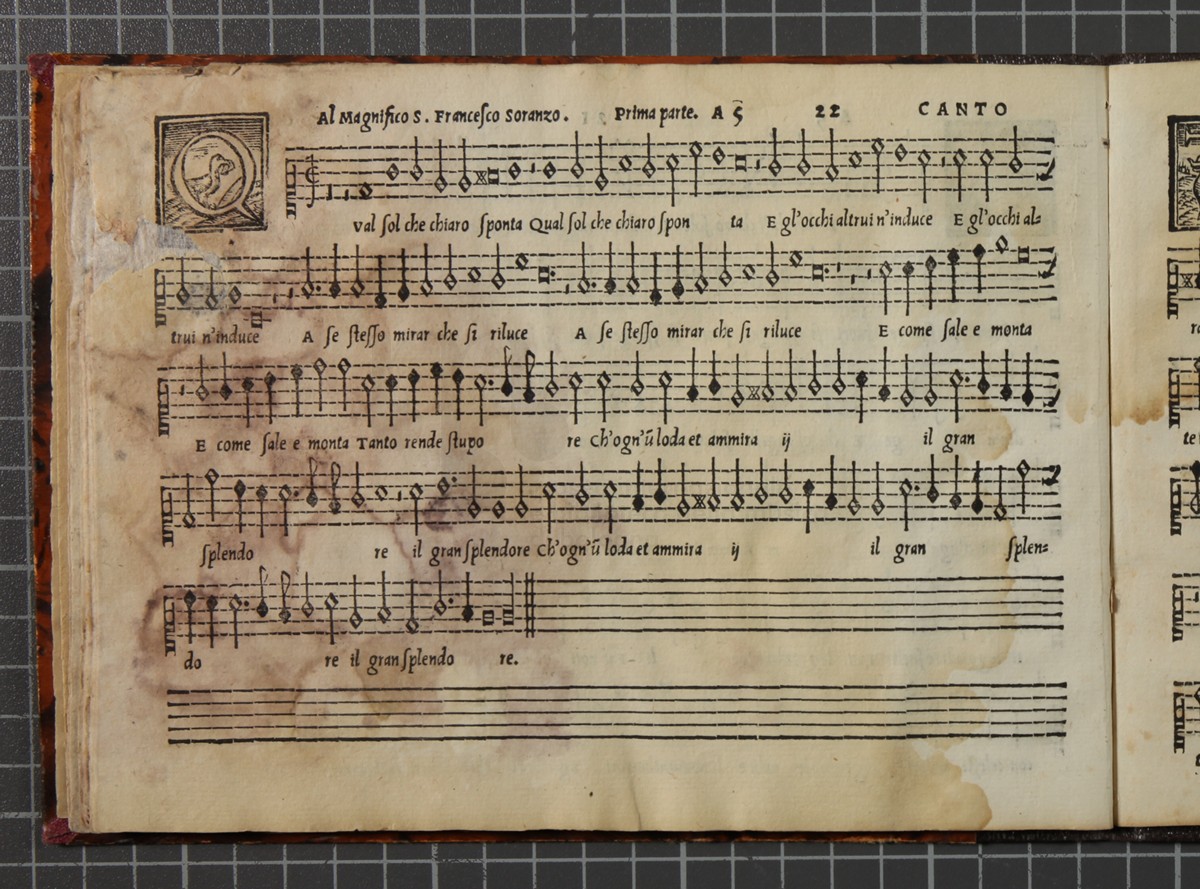 Al Magnifico S. Francesco Soranzo. Prima parte. A 5 22 CANTO
Qual sol che chiaro sponta Qual sol che chiaro spon ta E gl'occhi altrui n'induce E gl'occhi al=
trui n'induce A se stesso mirar che si riluce A se stesso mirar che si riluce E come sale e monta
E come sale e monta Tanto rende stupo re Ch'ogn'ũ loda et ammira ij il gran
splendo re il gran splendore Ch'ogn'ũ loda et ammira ij il gran splen=
do re il gran splendo re.